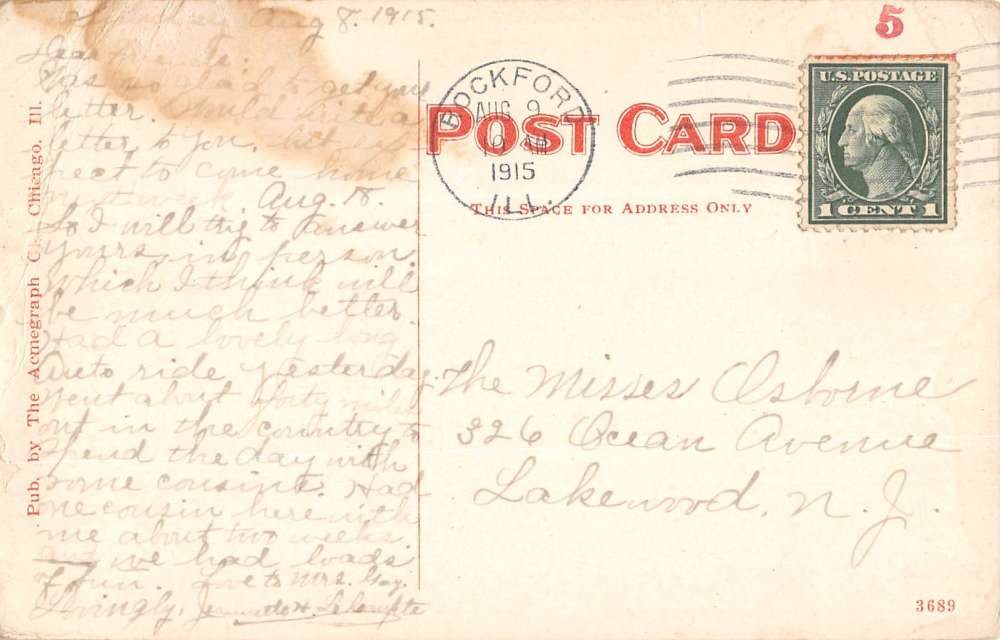 Aug 8. 1915.
Dear
Was so glad to get your
letter. Would
letter to you, but
pect to come home
next week Aug. 18.
So I will try to answer
yours in person.
Which I think will
be much better.
Had a lovely long
Auto ride yesterday.
Went about forty miles
out in the country to
spend the day with
some cousins. Had
one cousin here with
me about two weeks
and we had loads
of fun. Love to Mrs. Gay.
Lovingly,
Pub. by The Acmegraph Co., Chicago, Ill.
ROCKFORD
AUG 9
10 AM
1915
ILL.
POST CARD
THIS SPACE FOR ADDRESS ONLY
5
U.S. POSTAGE
1 CENT 1
The Misses Osborne
326 Ocean Avenue
Lakewood, N. J.
3689